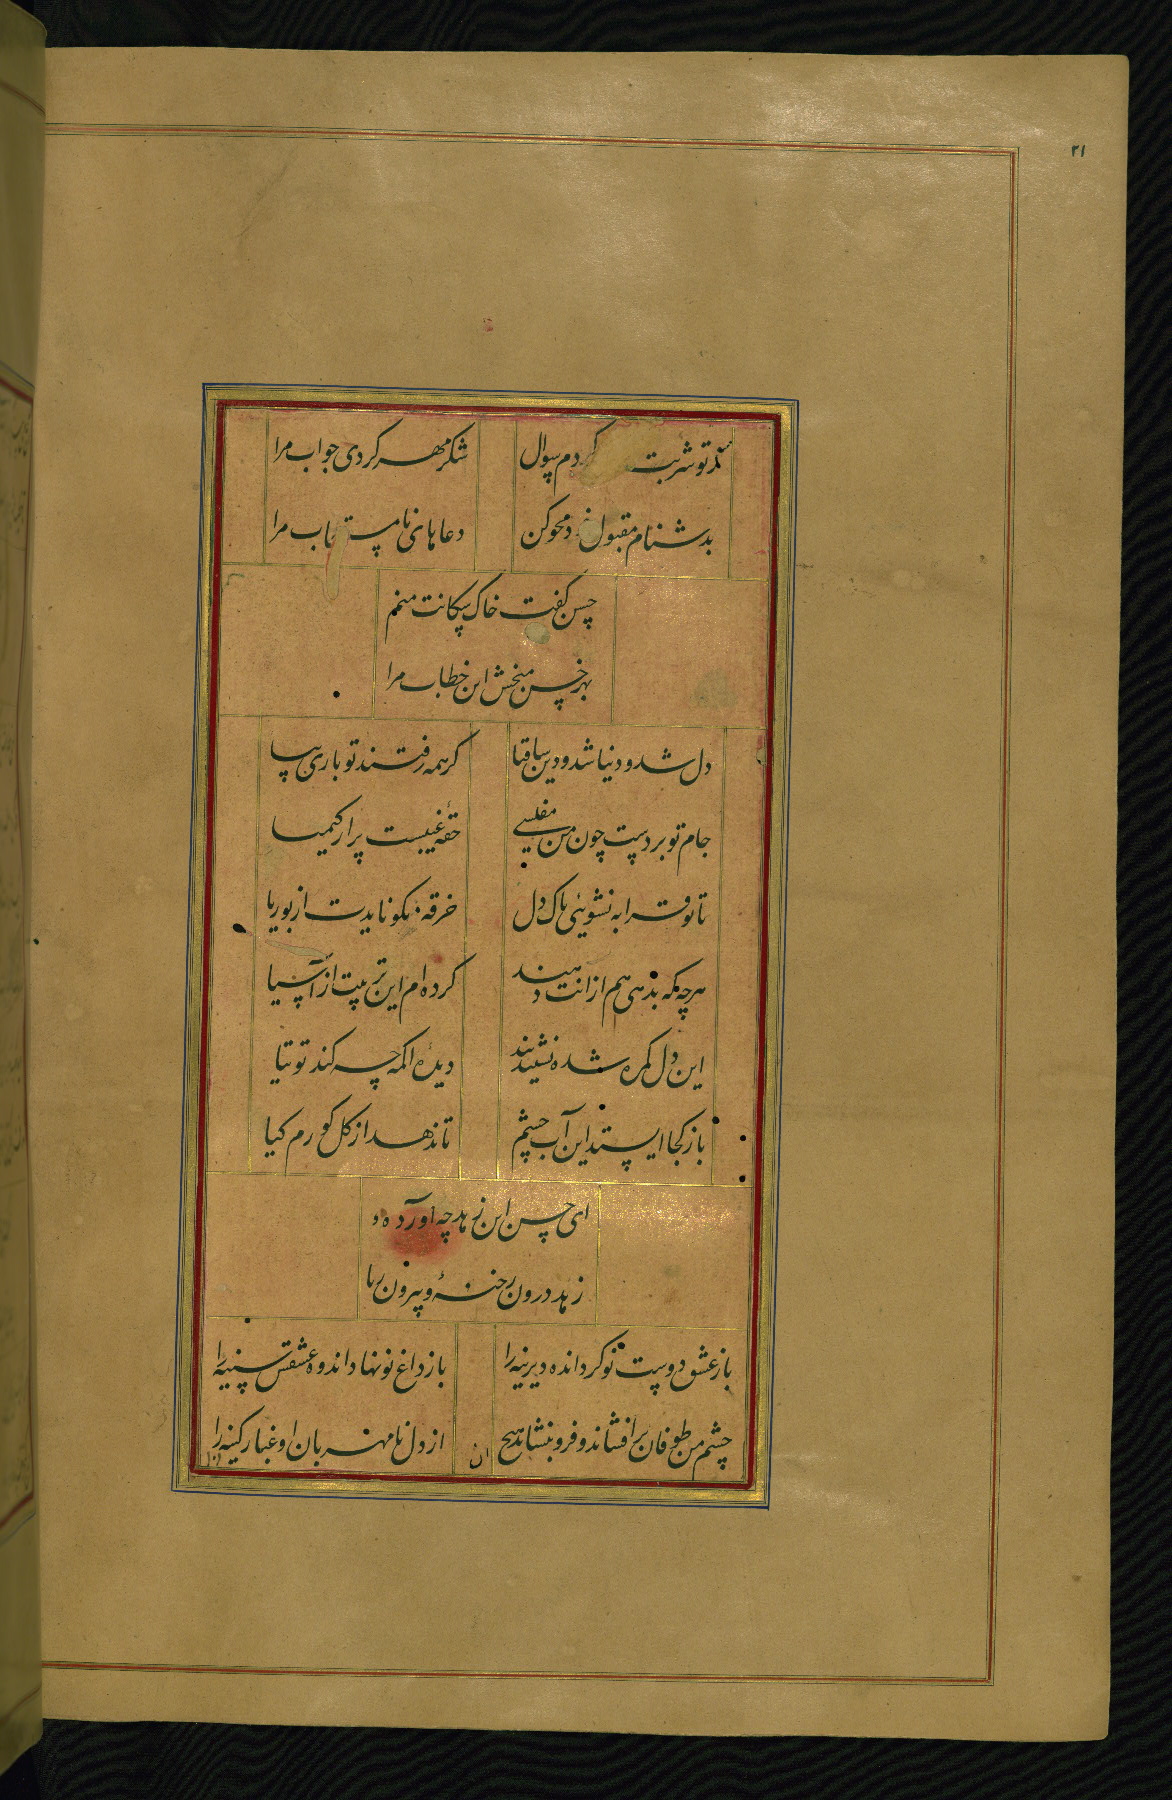 ۲۱
تو شربت کردم سوال شکر مهر کردی جواب مرا
بدشنام مقبول خود محو کن دعاهای نامستجاب مرا
حسن گفت خاک سگانت منم
بهر خس مبخش این خطاب مرا
دل شد و دنیا شد و دین ساقیا گر همه رفتند تو باری بیا
جام تو بر دست چون من مفلسی حقهٔ غیبست پر از کیمیا
تا تو قرابه نشویی پاک دل خرقه نکو نایدت از بوریا
هرچه که بدهی هم از انت دهند کرده ام این تربیت از آسیا
این دل گمره شده نشنید پند دیدهٔ اکمه چه کند توتیا
باز کجا ایستد این آب چشم تا ندهد از گل کورم گیا
ای حسن این زهد چه آوردهٔ
زهد درون رخنهٔ و بیرون ریا
باز عشق دوست نو کرد انده دیرینه را باز داغ نو نهاد اندوه عشقش سینه را
چشم من طوفان برافشاند و فرو ننشاند هیچ از دل نامهربان او غبار کینه را
ان